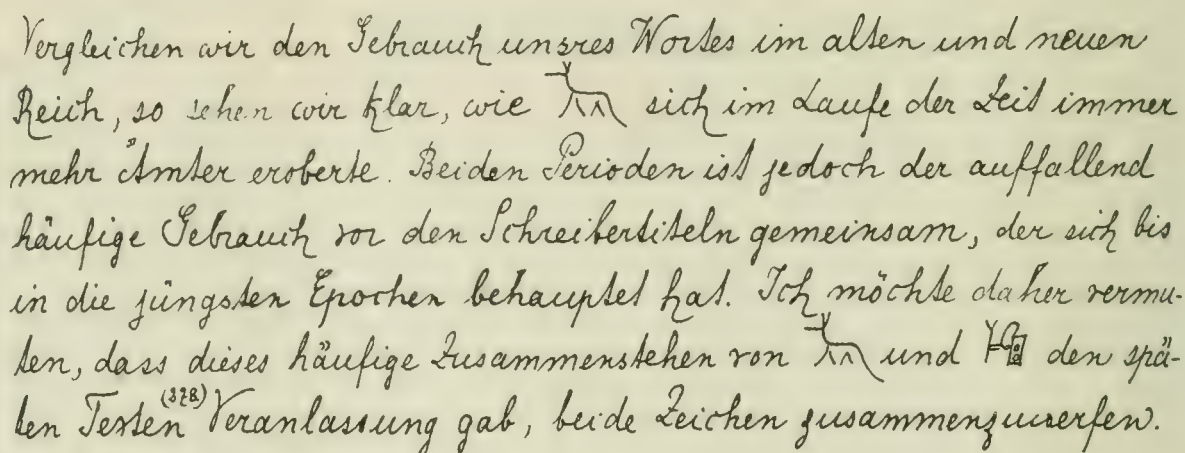 Vergleichen wir den Gebrauch unsres Wortes im alten und neuen
Reich, so sehen wir klar, wie 𓃛 sich im Laufe der Zeit immer
mehr Ämter eroberte. Beiden Perioden ist jedoch der auffallend
häufige Gebrauch vor den Schreibertiteln gemeinsam, der sich bis
in die jüngsten Epochen behauptet hat. Ich möchte daher vermu-
ten, dass dieses häufige Zusammenstehen von 𓃛 und 𓏞 den spä-
ten Texten (378) Veranlassung gab, beide Zeichen zusammenzuwerfen.